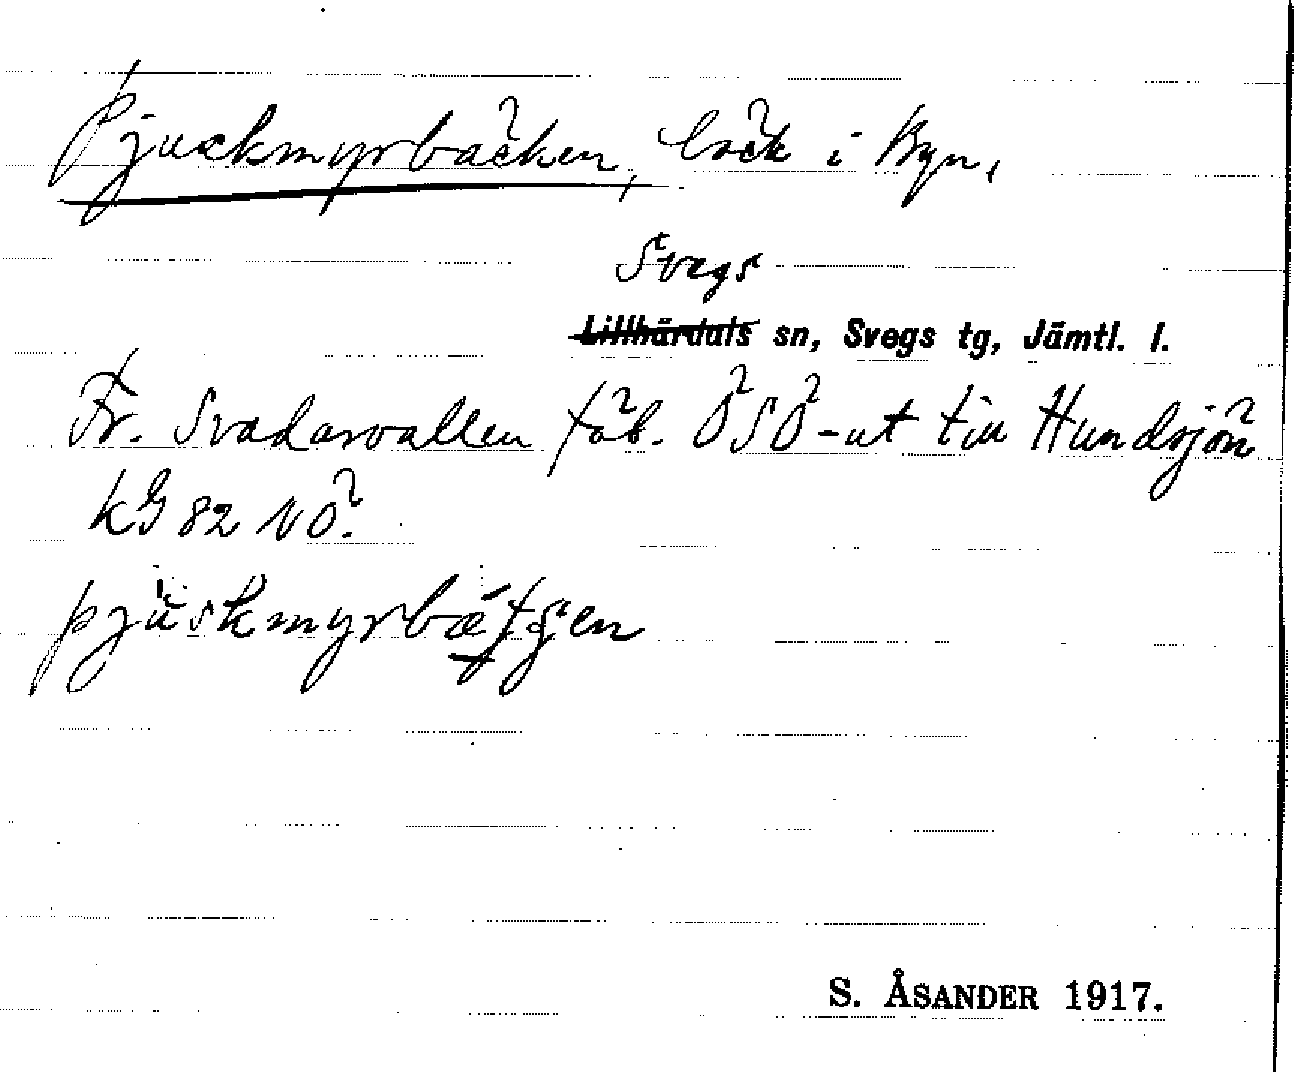 Pjuckmyrbäcken, bäck i Byn,
Svegs
Lillhärdals sn, Svegs tg, Jämtl. l.
Fr. Svadarvallen fäb. ÖSÖ-ut till Hundsjön
kG 82 NÖ.
pjuskmyrbæ
S. ÅSANDER 1917.